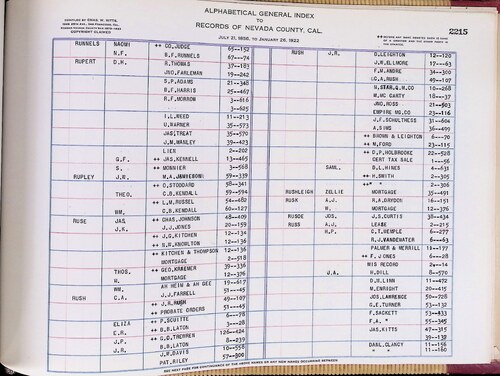 ALPHABETICAL GENERAL INDEX
TO
RECORDS OF NEVADA COUNTY, CAL.
JULY 21, 1856, TO JANUARY 26, 1922
2215
COPYRIGHT CLAIMED
RUNNELS NAOMI ++ CO. JUDGE 65--152
N.F. ++ B.F. RUNNELS 67--74
RUPERT D.H. R. THOMAS 37--183
JNO. FARLEY 19--242
S.P. ADAMS 21--348
B.F. HARRIS 25--467
R.F. MORROW 3--616
3--625
I.L. REED 11--213
D. WARNER 35--573
JAS. TREAT 35--570
J.M. WANSLEY 39--423
LIEN 2--202
G.F. ++ JAS. KENNELL 13--465
S. ++ MONNIER 3--568
RUPLEY J.W. M.A. JAMIESON 59--339
++ C. STODDARD 58--341
THEO. C.B. KENDALL 59--594
++ L.M. RUSSEL 54--482
WM. C.B. KENDALL 60--127
RUSE JAS ++ CHAS. JOHNSON 48--409
J.K. J.J. JONES 20--159
++ J.G. KITCHEN 12--134
++ N.H. KNOWLTON 12--136
++ KITCHEN & THOMPSON 12--136
MORTGAGE 2--518
THOS. ++ GEO. KRAEMER 39--336
W. MORTGAGE 12--376
WM. AH HEIM & AH GEE 19--617
RUSH C.A. J.J. FARRELL 51--45
++ J.R. RUSH 49--107
++ PROBATE ORDERS 51--45
++ P. SCUITTE 6--78
ELIZA ++ B.B. LATON 3--28
E.R. ++ C.D. TREWREN 126--424
J.F. B.B. LATON 8--239
J.R. J.W. DAVIS 10--558
PAT. RILEY 57--308
RUSH J.R. D. LEIGHTON 12--120
J.W. ELLMORE 17--63
F.W. ANDRE 34--300
++ C.A. RUSH 49--107
M. STAR. Q.M. CO 10--268
M. MC CARTY 18--37
JNO. ROSS 21--503
EMPIRE MG. CO 23--116
J.F. SCHULTHESS 31--604
A. SIMS 36--499
++ BROWN & LEIGHTON 6--70
++ M. FORD 23--115
++ D.P. HOLBROOKE 22--528
CERT TAX SALE 1--56
SAML. D.L. HINES 4--631
++ H. SMITH 2--305
++ " " 2--306
RUSHLEIGH ZELLIE MORTGAGE 35--491
RUSK A.J. R.A. DRAYDON 16--151
W. MORTGAGE 12--376
RUSOE JOS. J.S. CURTIS 38--434
RUSS A.J. LEASE 2--215
H.P. C.T. WEMPLE 6--277
R.J. VANDEWATER 6--63
PALMER & MERRILL 11--177
++ F. JONES 6--28
MIS RECORD 2--14
J.A. H. DILL 8--570
D.H. LINN 11--472
M. ENRIGHT 20--415
JOS. LAWRENCE 50--728
G.E. TURNER 53--132
F. SACKETT 53--833
F.A. " 53--345
JAS. KITTS 47--315
39--132
DANL. CLANCY 11--156
" " 11--160